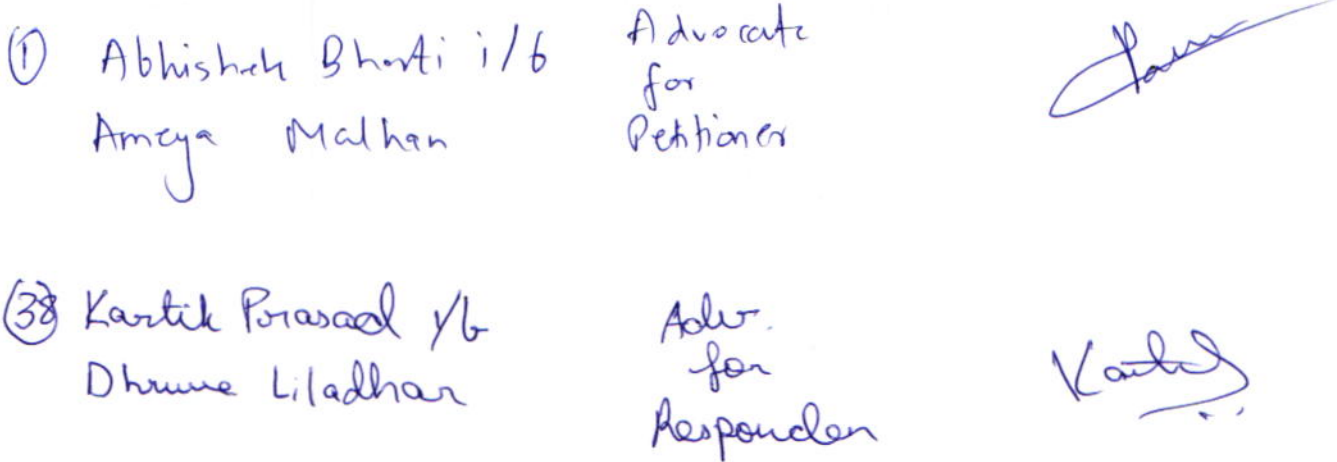 ① Abhishek Bharti i/b
Ameya Malhan
Advocate
for
Petitioner
㊳ Kartik Prasad i/b
Dhruve Liladhar
Adv.
for
Responden
Kartik